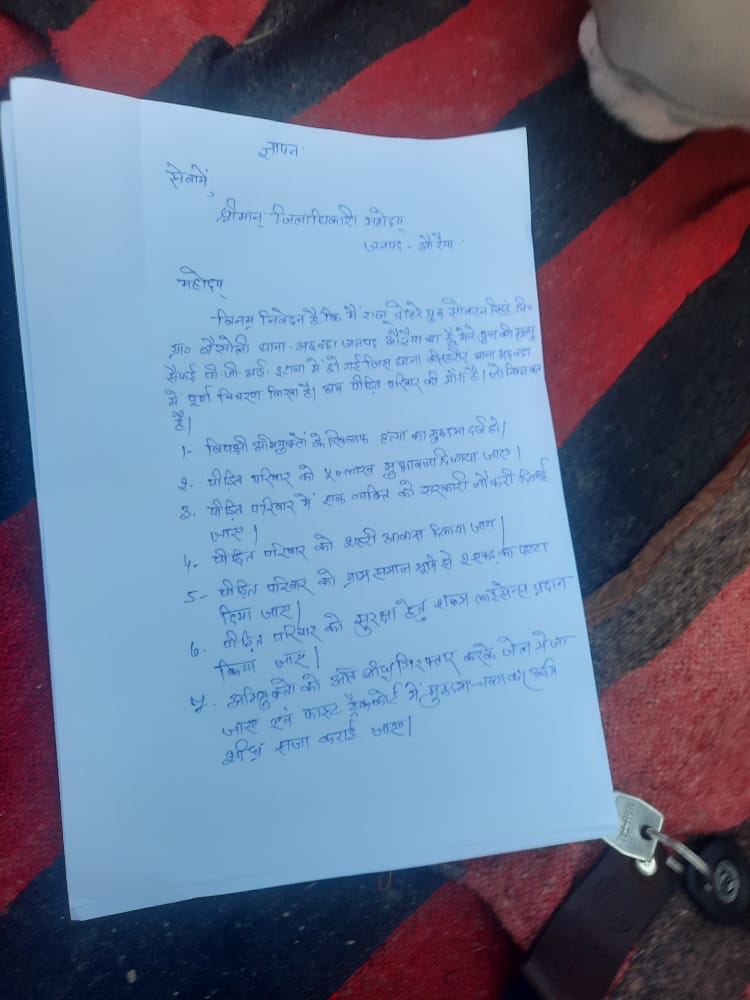 ज्ञापन
सेवामें,
श्रीमान् जिलाधिकारी महोदय
जनपद - औरैया
महोदय
विनम्र निवेदन है कि मैं राजू दोहरे पुत्र सोबरन सिंह नि०
ग्रा० वैसोली थाना - अछल्दा जनपद औरैया का हूँ मेरे पुत्र की मृत्यु
सैफई पी.जी.आई. इटावा में हो गई जिस घटना की तहरीर थाना अछल्दा
में पूर्ण विवरण लिखा है। अब पीड़ित परिवार की माँग है। जो निम्नवत
है।
1- विपक्षी अभियुक्तों के खिलाफ हत्या का मुकद्दमा दर्ज हो।
2. पीड़ित परिवार को ५० लाख मुआवजा दिलाया जाए।
3. पीड़ित परिवार में एक व्यक्ति को सरकारी नौकरी दिलाई
जाए।
4. पीड़ित परिवार को शहरी आवास दिलाया जाय।
5- पीड़ित परिवार को ग्राम समाज भूमि से 2 एकड़ का पट्टा
दिया जाए।
6. पीड़ित परिवार को सुरक्षा हेतु शस्त्र लाइसेन्स प्रदान
किया जाए।
7. अभियुक्तो को अति शीघ्र गिरफ्तार करके जेल भेजा
जाए एवं फास्ट ट्रैक कोर्ट में मुकद्दमा चला कर अति
शीघ्र सजा कराई जाए।